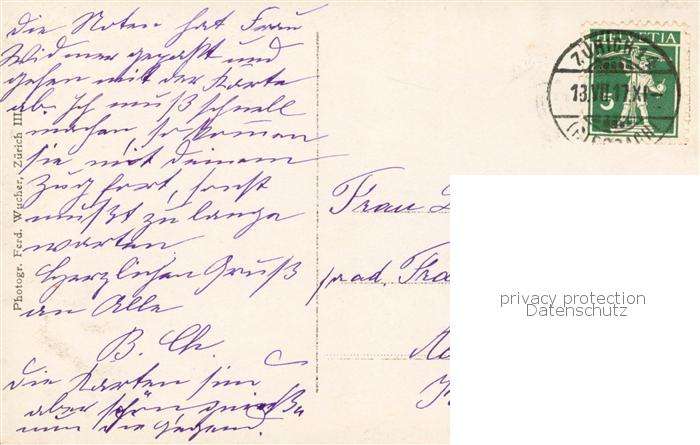 Die Noten hat Frau
Widmer gepackt und
gehen mit der Karte
ab. Ich muß schnell
machen, so kommen
sie mit deinem
Zug fort, sonst
mußt zu lange
warten.
Herzlichen Gruß
an Alle
B. Ch.
Die Karten sim
aber schön
nun die Gegend.
Photogr. Ferd. Wucher, Zürich III
HELVETIA
5
ZÜRICH
13.VII.17.XI
Frau
pad.
privacy protection
Datenschutz